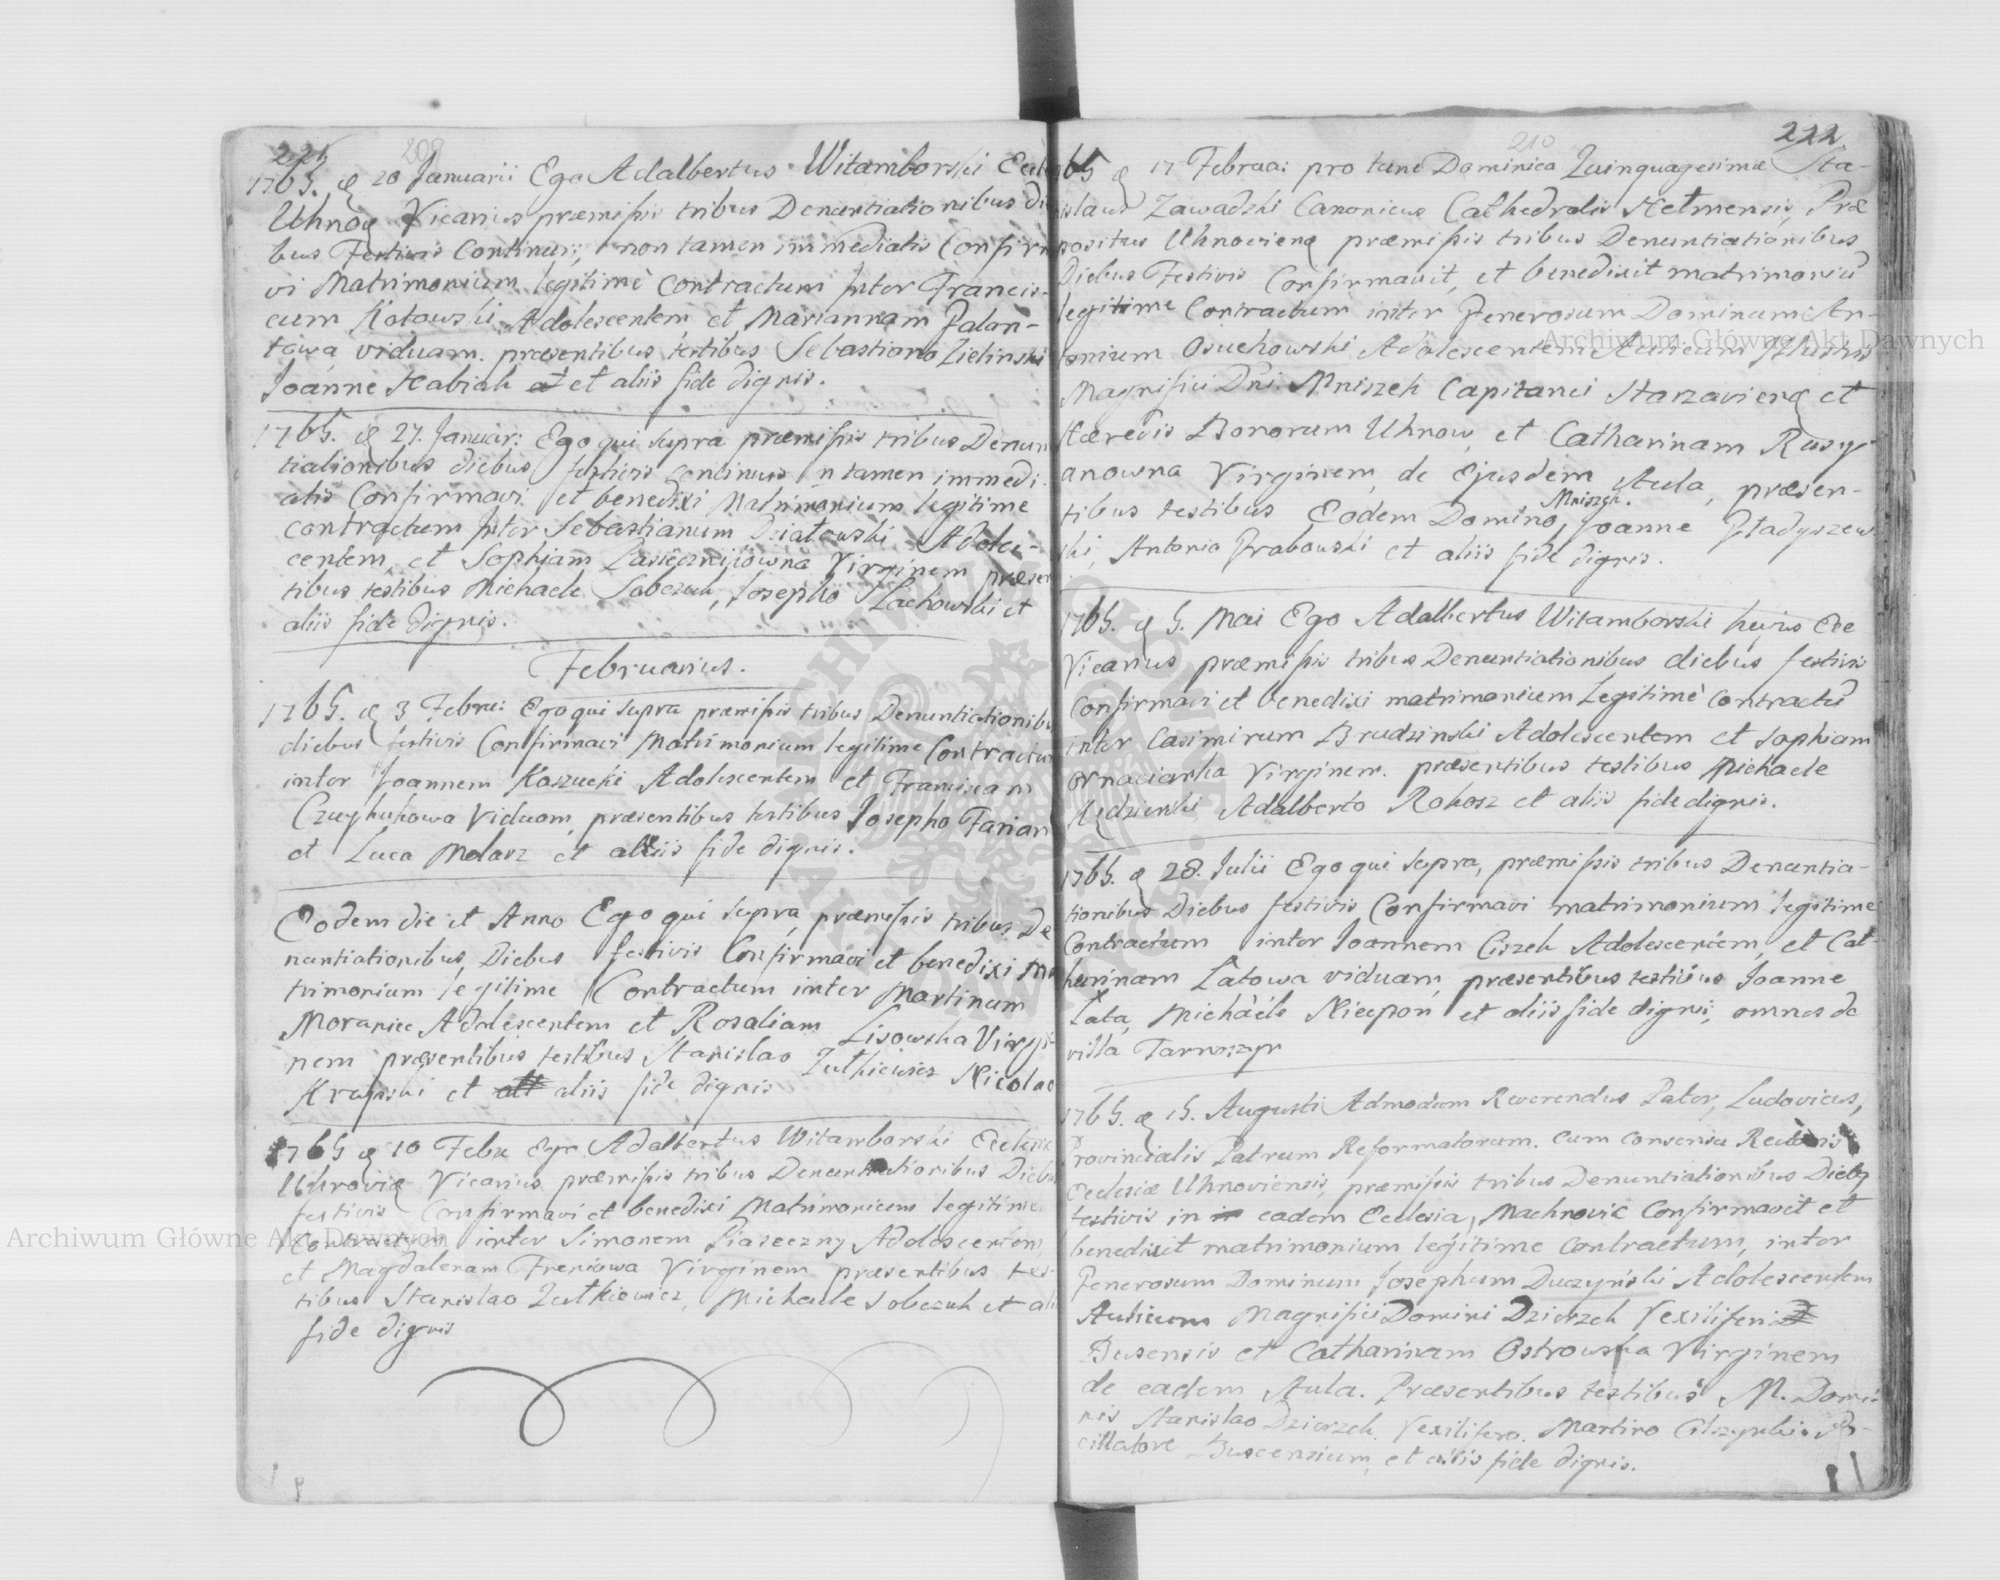 221
209
1765. d 20 Januarii Ego Adalbertus Witamborski Eccl
Uhnov Vicarius præmissis tribus Denuntiationibus Di
bus Festivis Continuis, non tamen immediatis Confirm
vi Matrimonium legitimè Contractum Inter Francis-
cum Kotowski Adolescentem et Mariannam Galan-
towa viduam. præsentibus testibus Sebastiano Zielinski
Joanne Habiak et aliis fide dignis.
1765. d 27. Januar: Ego qui supra præmissis tribus Denun
tiationibus diebus festivis continuis n tamen immedi
atis Confirmavi et benedixi Matrimonium legitime
contractum Inter Sebastianum Działowski Adoles-
centem, et Sophiam Virginem præsen
tibus testibus Michaele Sobczuk, Josepho Lachowski et
aliis fide dignis.
Februarius.
1765. d 3 Febru: Ego qui supra præmissis tribus Denuntiationibu
diebus festivis Confirmavi Matrimonium legitime Contractum
inter Joannem Koszucki Adolescentem et Franciscam
Czuykukowa Viduam, præsentibus testibus Josepho Farian
et Luca Molarz et aliis fide dignis.
Eodem die et Anno Ego qui supra, præmissis tribus De
nuntiationibus Diebus festivis Confirmavi et benedixi Ma
trimonium legitime Contractum inter Martinum
Moraniec Adolescentem et Rosaliam Lisowska Virgi-
nem præsentibus testibus Stanislao Zutkiewicz Nicolao
et aliis fide dignis
1765 d 10 Febr Ego Adalbertus Witamborski Ecclesiæ
Uhnoviæ Vicarius præmissis tribus Denuntiationibus Diebu
festivis Confirmavi et benedixi Matrimonium legitime
Contractum inter Simonem Piaseczny Adolescentem
et Magdalenam Freniowa Virginem præsentibus tes-
tibus Stanislao Zutkiewicz, Michaele Sobczuk et ali
fide dignis
222.
210
1765 d 17 Februa: pro tunc Dominica Quinquagesimæ Sta-
nislaus Zawadzki Canonicus Cathedralis Hełmensis, Præ
positus Uhnoviensis præmissis tribus Denuntiationibus
Diebus Festivis Confirmavit, et benedixit matrimoniu
legitime Contractum inter Generosum Dominum An-
tonium Osuchowski Adolescentem Aulicum Illustris
Magnifici Dni Mniszek Capitanei et
Hæredis Bonorum Uhnow, et Catharinam Rusy
anowna Virginem, de Ejusdem Aula, præsen-
tibus testibus Eodem Domino Mniszek. Joanne Gładyszew
ski, Antonio Grabowski et aliis fide dignis.
1765. d 5. Mai Ego Adalbertus Witamborski hujus Ecc
Vicarius præmissis tribus Denuntiationibus diebus festivis
Confirmavi et benedixi matrimonium Legitimè Contractu
inter Casimirum Brudzinski Adolescentem et Sophiam
Virginem. præsentibus testibus Michaele
Adalberto Rokosz et aliis fide dignis.
1765. d 28. Julii Ego qui supra, præmissis tribus Denuntia-
tionibus Diebus festivis Confirmavi matrimonium legitime
Contractum inter Joannem Ciszek Adolescentem, et Cat-
harinam Łatowa viduam, præsentibus testibus Joanne
Łata, Michaéle Niecpoń et aliis fide dignis, omnes de
villa Tarnoszyn
1765. d 15. Augusti Admodum Reverendus Pater, Ludovicus,
Provincialis Patrum Reformatorum. cum consensu Rectoris
Ecclesiæ Uhnoviensis, præmissis tribus Denuntiationibus Dieb9
festivis in eadem Ecclesia, Machnovic Confirmavit et
benedixit matrimonium legitime Contractum, inter
Generosum Dominum Josephum Duczyński Adolescentem
Aulicum Magnifici Domini Dzierzek Vexiliferi
Busensis et Catharinam Ostrowska Virginem
de eadem Aula. Præsentibus testibus M. Domi-
nis Stanislao Dzierzek. Vexilifero. Martino Po-
cillatore Buscensium, et aliis fide dignis.
Archiwum Główne Akt Dawnych
Archiwum Główne Akt Dawnych